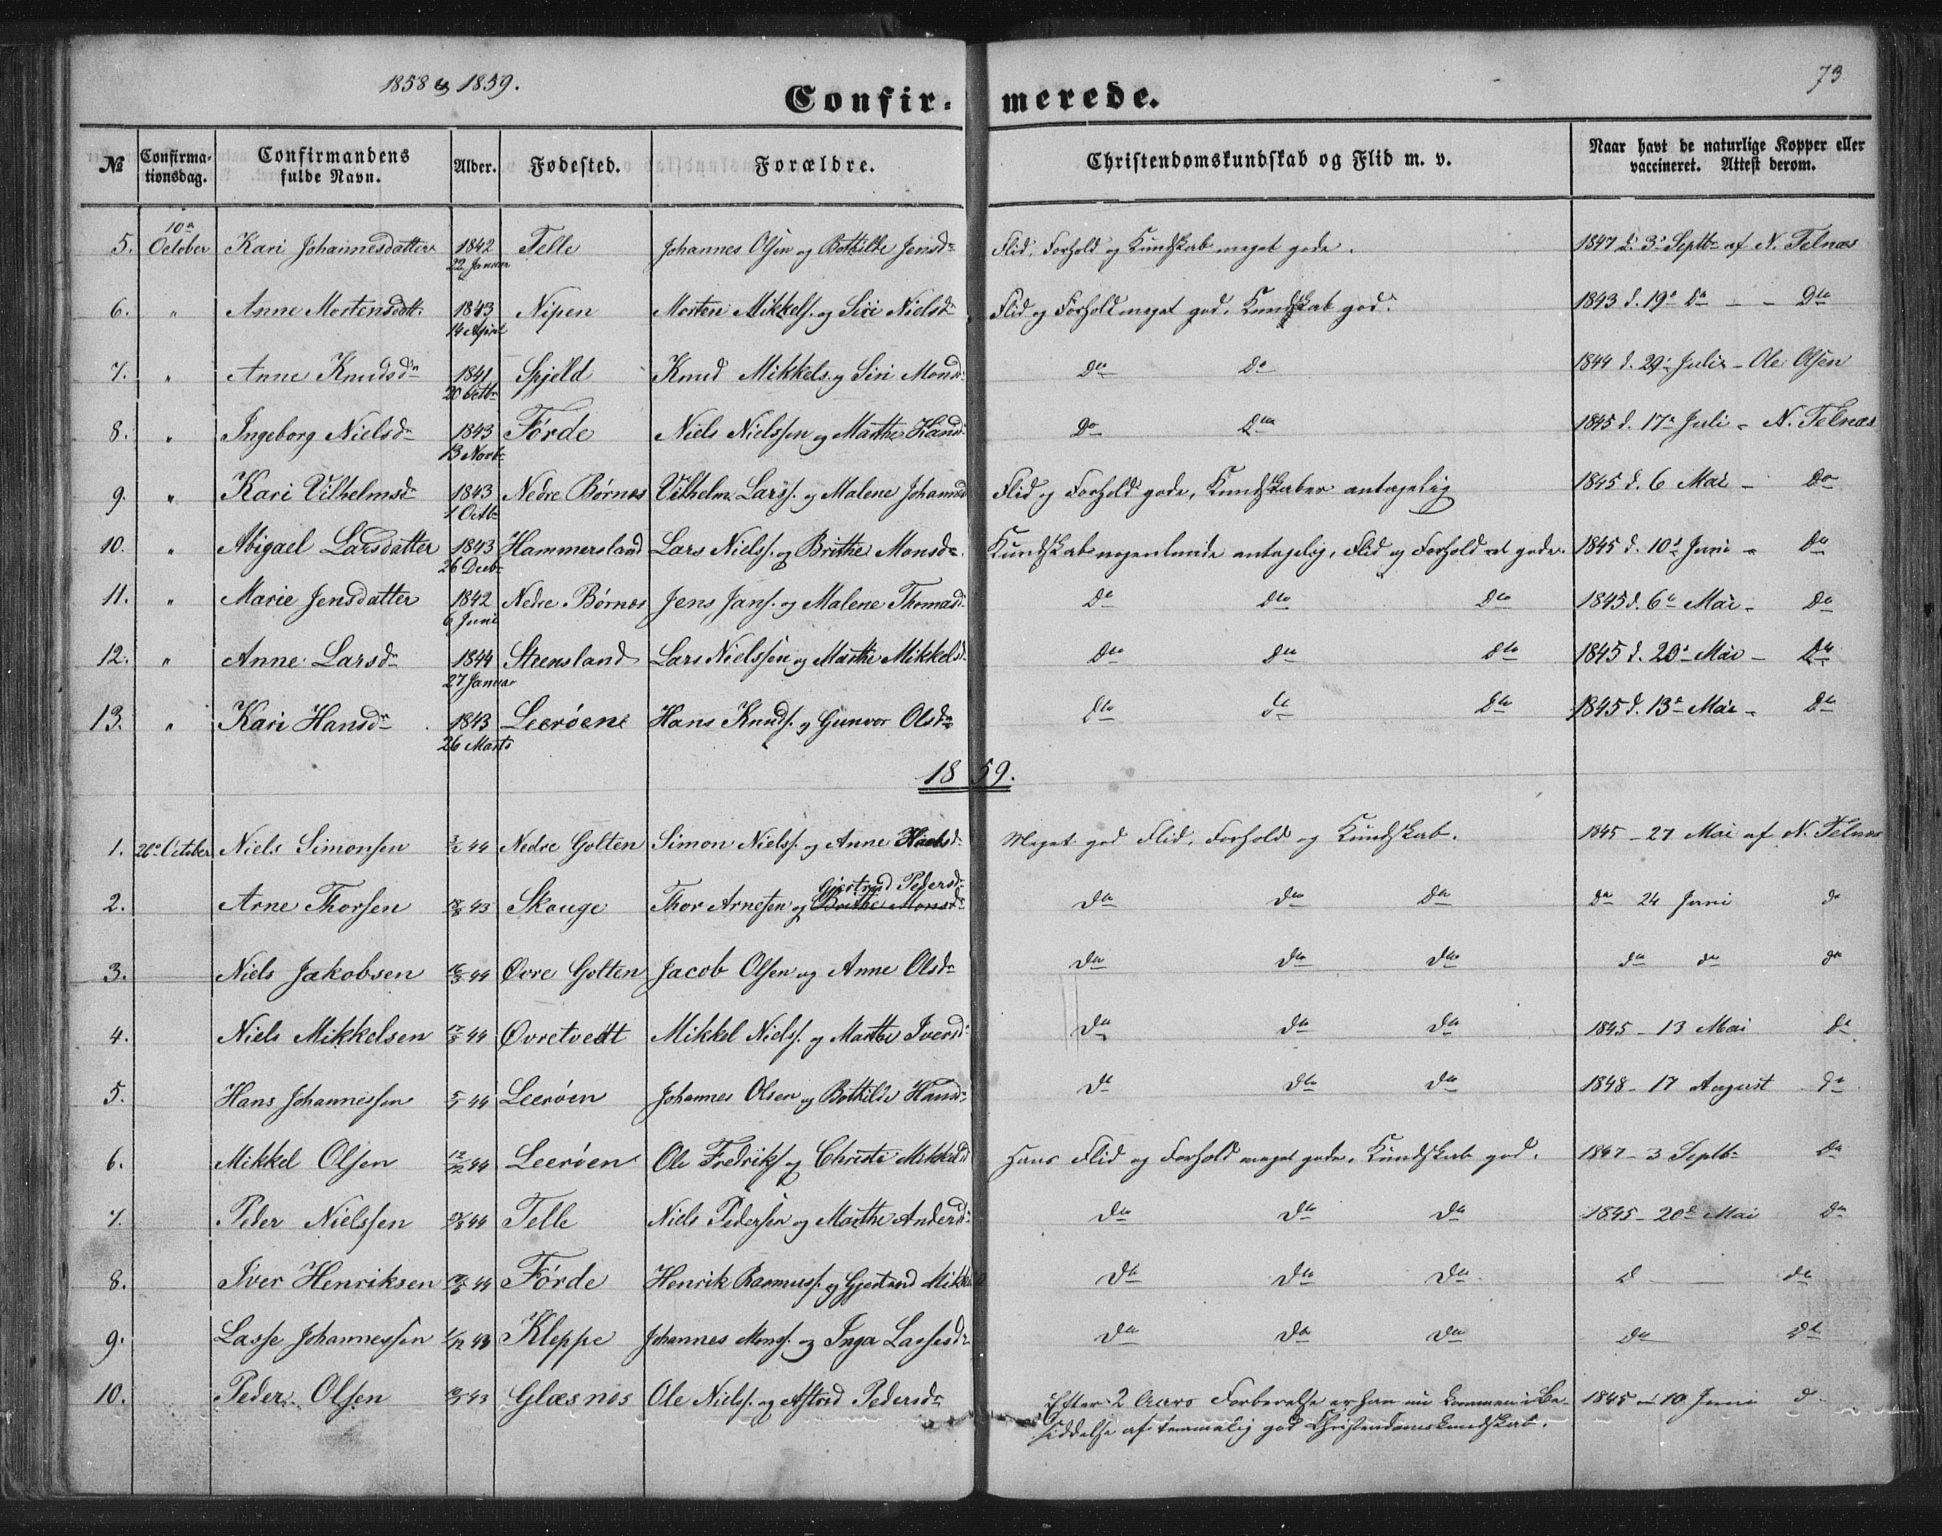 1858 og 1859.
73
Confir- merede.
No Confirma- tionsdag. Confirmandens fulde Navn. Alder. Fødested. Forældre. Christendomskundskab og Flid m. v. Naar havt de naturlige Kopper eller vaccineret. Attest derom.
5. 10de October Kari Johannesdatter 1842 22 Januar Telle Johannes Olsen og Bothilde Jensdr Flid, Forhold og Kundskab meget gode. 1847 d. 3' Septbr af N. Telnæs
6. " Anne Mortensdatt. 1843 14 April Nipen Morten Mikkels. og Siri Nielsdr Flid og Forhold meget god, Kundskab god. 1843 d. 19de do - - Dto
7. " Anne Knudsdr 1841 20 Octbr Spjeld Knud Mikkels. og Siri Monsd: do do 1844 d. 29de Juli - Ole Olsen
8. " Ingeborg Nielsdr 1843 13 Novbr Førde Niels Nielssen og Marthe Hansd: do do 1845 d. 17de Juli - N. Telnæs
9. " Kari Vilhelmsdr 1843 1 Octbr Nedre Børnes Vilhelm Larss. og Malene Johannesd Flid og Forhold gode, Kundskaber antagelig 1845 d. 6 Mai - do
10. " Abigael Larsdatter 1843 26 Decbr Hammersland Lars Nielss. og Brithe Monsdr. Kundskab nogenlunde antagelig, Flid og Forhold ret gode. 1845 d. 10de Juni - do
11. " Marie Jensdatter 1842 6 Juni Nedre Børnes Jens Jans. og Malene Thomasd: do dto dto 1845 d. 6te Mai - do
12. " Anne Larsdr 1844 27 Januar Steensland Lars Nielssen og Marthe Mikkelsd: dto dto dto 1845 d. 20de Mai - do
13. " Kari Hansdr 1843 26 Marts Leerøene Hans Knuds. og Gunvor Olsdr dto do dto 1845 d. 13de Mai - dto
1859.
1. 26de October Niels Simonsen 3/2 44 Nedre Golten Simon Nielss. og Anne Hansd: Meget god Flid, Forhold og Kundskab. 1845 - 27 Mai af N. Telnæs
Gjertrud Pedersdr
2. Arne Thorsen 43 Skouge Thor Arnesen og Brithe Monsdr do do do do 24 Juni do
3. Niels Jakobsen 44 Øvre Golten Jacob Olsen og Anne Olsdr do do do do do do
4. Niels Mikkelsen 44 Øvretvedt Mikkel Nielss. og Marthe Iversd: do do do 1845 - 13 Mai do
5. Hans Johannessen 44 Leerøen Johannes Olsen og Bothilde Hansd: do dto do 1848 - 17 August do
6. Mikkel Olsen 44 Leerøen Ole Fredriks. og Christi Mikkelsd Hans Flid og Forhold meget gode, Kundskab god. 1847 - 3 Septbr do
7. Peder Nielssen 44 Telle Niels Pedersen og Marthe Andersd: do do do 1845 - 20de Mai do
8. Iver Henriksen 44 Førde Henrik Rasmuss. og Gjertrud Mikkelsd do do do d do
9. Lasse Johannessen 43 Kleppe Johannes Monss. og Inga Lassesdr do do do do do
10. Peder Olsen 43 Glæsnes Ole Nielss. og Astrid Pedersdr Efter 2 Aars Forberelse er han nu kommen i Be- 1845 - 10 Juni d
siddelse af temmelig god Christendomskundskab.